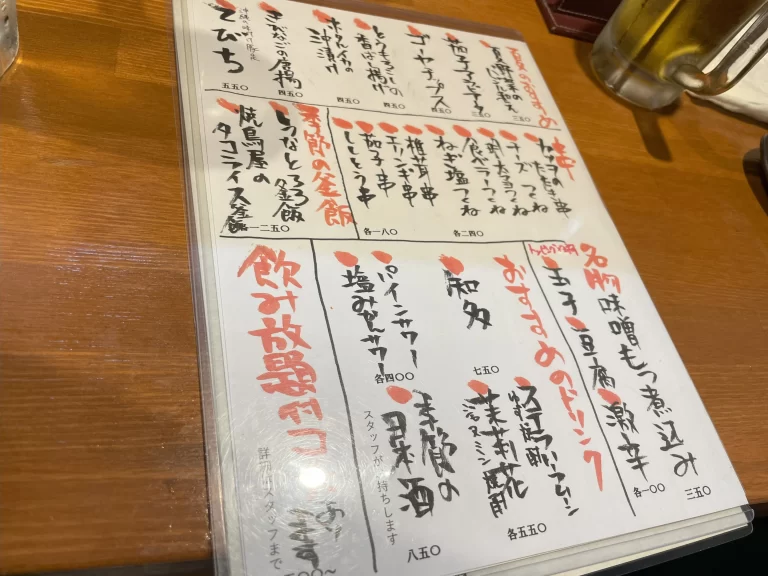 夏のおすすめ
夏野菜の
三五〇
茄子
三五〇
ゴーヤチップス
四五〇
とうもろこしの
香ばし揚げ
四五〇
ホタルイカの
沖漬け
四五〇
きびなごの唐揚
四五〇
てびち
五五〇
串
チーズつくね
ねぎ塩つくね
各二四〇
椎茸串
エリンギ串
茄子串
ししとう串
各一八〇
季節の釜飯
しらすとろろ釜飯
焼鳥屋の
タコライス釜飯
各一二五〇
名物
味噌もつ煮込み
三五〇
玉子
豆腐
激辛
各一〇〇
おすすめのドリンク
知多
七五〇
パインサワー
塩みかんサワー
各四〇〇
茉莉花
ジャスミン焼酎
各五五〇
季節の
日本酒
スタッフが
持ちします
八五〇
飲み放題付コース
スタッフまで